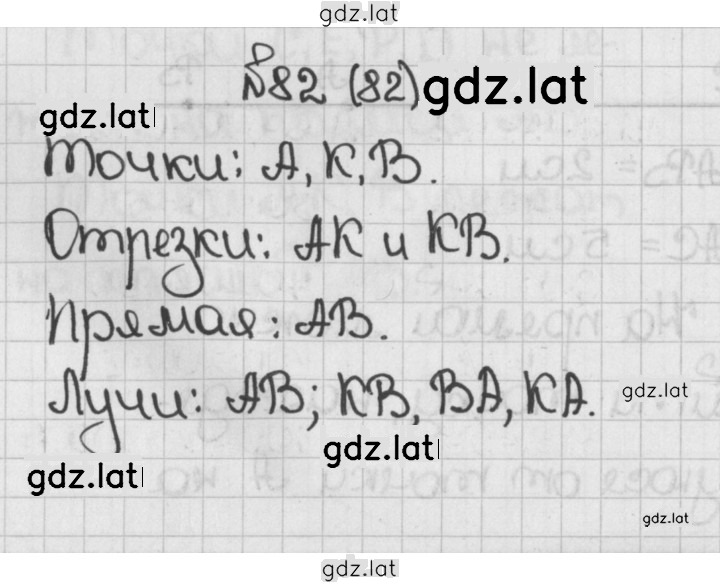 gdz.lat
№82 (82) gdz.lat
gdz.lat
Точки: А, К, В.
Отрезки: АК и КВ.
Прямая: АВ.
Лучи: АВ; КВ, ВА, КА.
gdz.lat
gdz.lat
gdz.lat
gdz.lat
gdz.lat